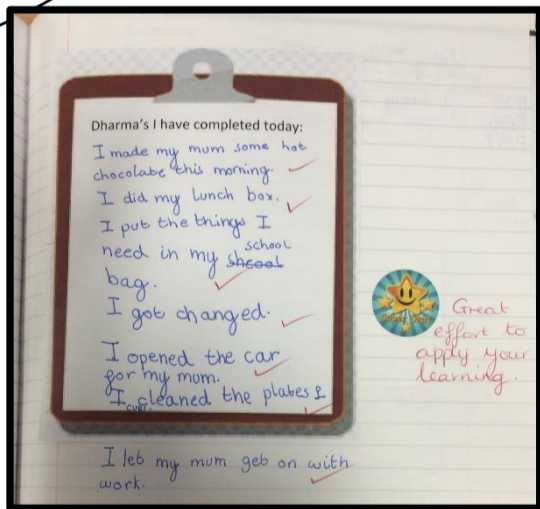 Dharma's I have completed today:
I made my mum some hot
chocolate this morning.
I did my lunch box.
I put the things I
need in my shcool school
bag.
I got changed.
I opened the car
for my mum.
I cleaned the plates &
I let my mum get on with
work.
Super Star
Great
effort to
apply your
learning.